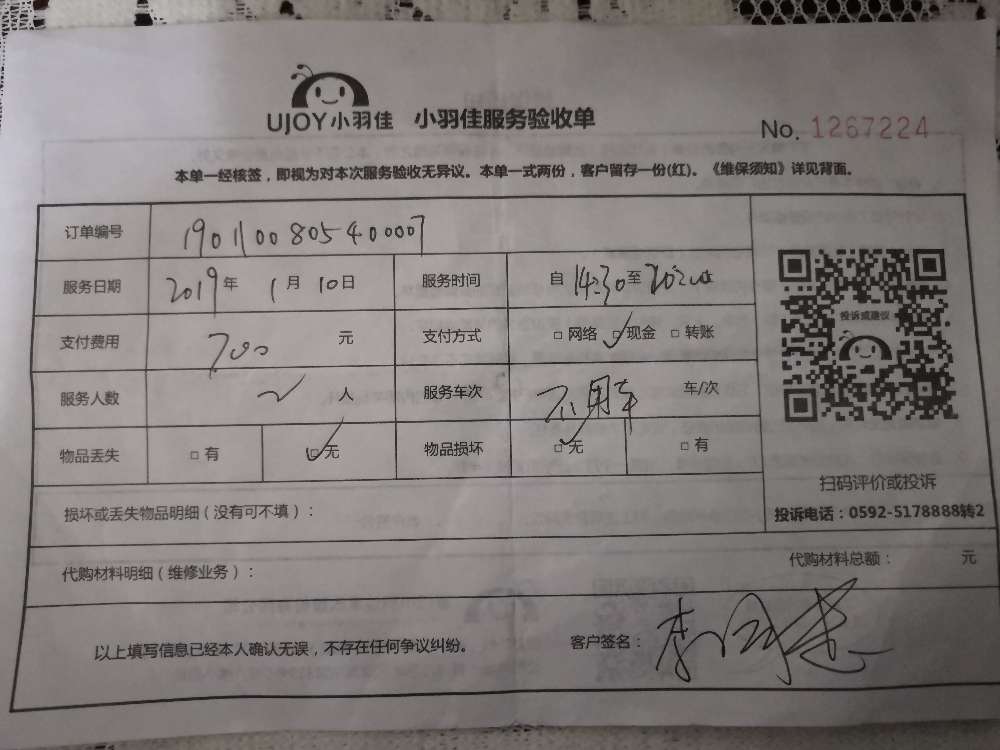 UJOY小羽佳 小羽佳服务验收单
No. 1267224
本单一经核签，即视为对本次服务验收无异议。本单一式两份，客户留存一份(红)。《维保须知》详见背面。
订单编号 19011008054 00007
服务日期 2019年 1月 10日 服务时间 自 14:30 至
支付费用 700 元 支付方式 □网络 ☑现金 □转账
服务人数 人 服务车次 不用车 车/次
物品丢失 □有 ☑无 物品损坏 ☑无 □有
投诉或建议
扫码评价或投诉
投诉电话：0592-5178888转2
损坏或丢失物品明细（没有可不填）：
代购材料明细（维修业务）： 代购材料总额： 元
以上填写信息已经本人确认无误，不存在任何争议纠纷。 客户签名：李